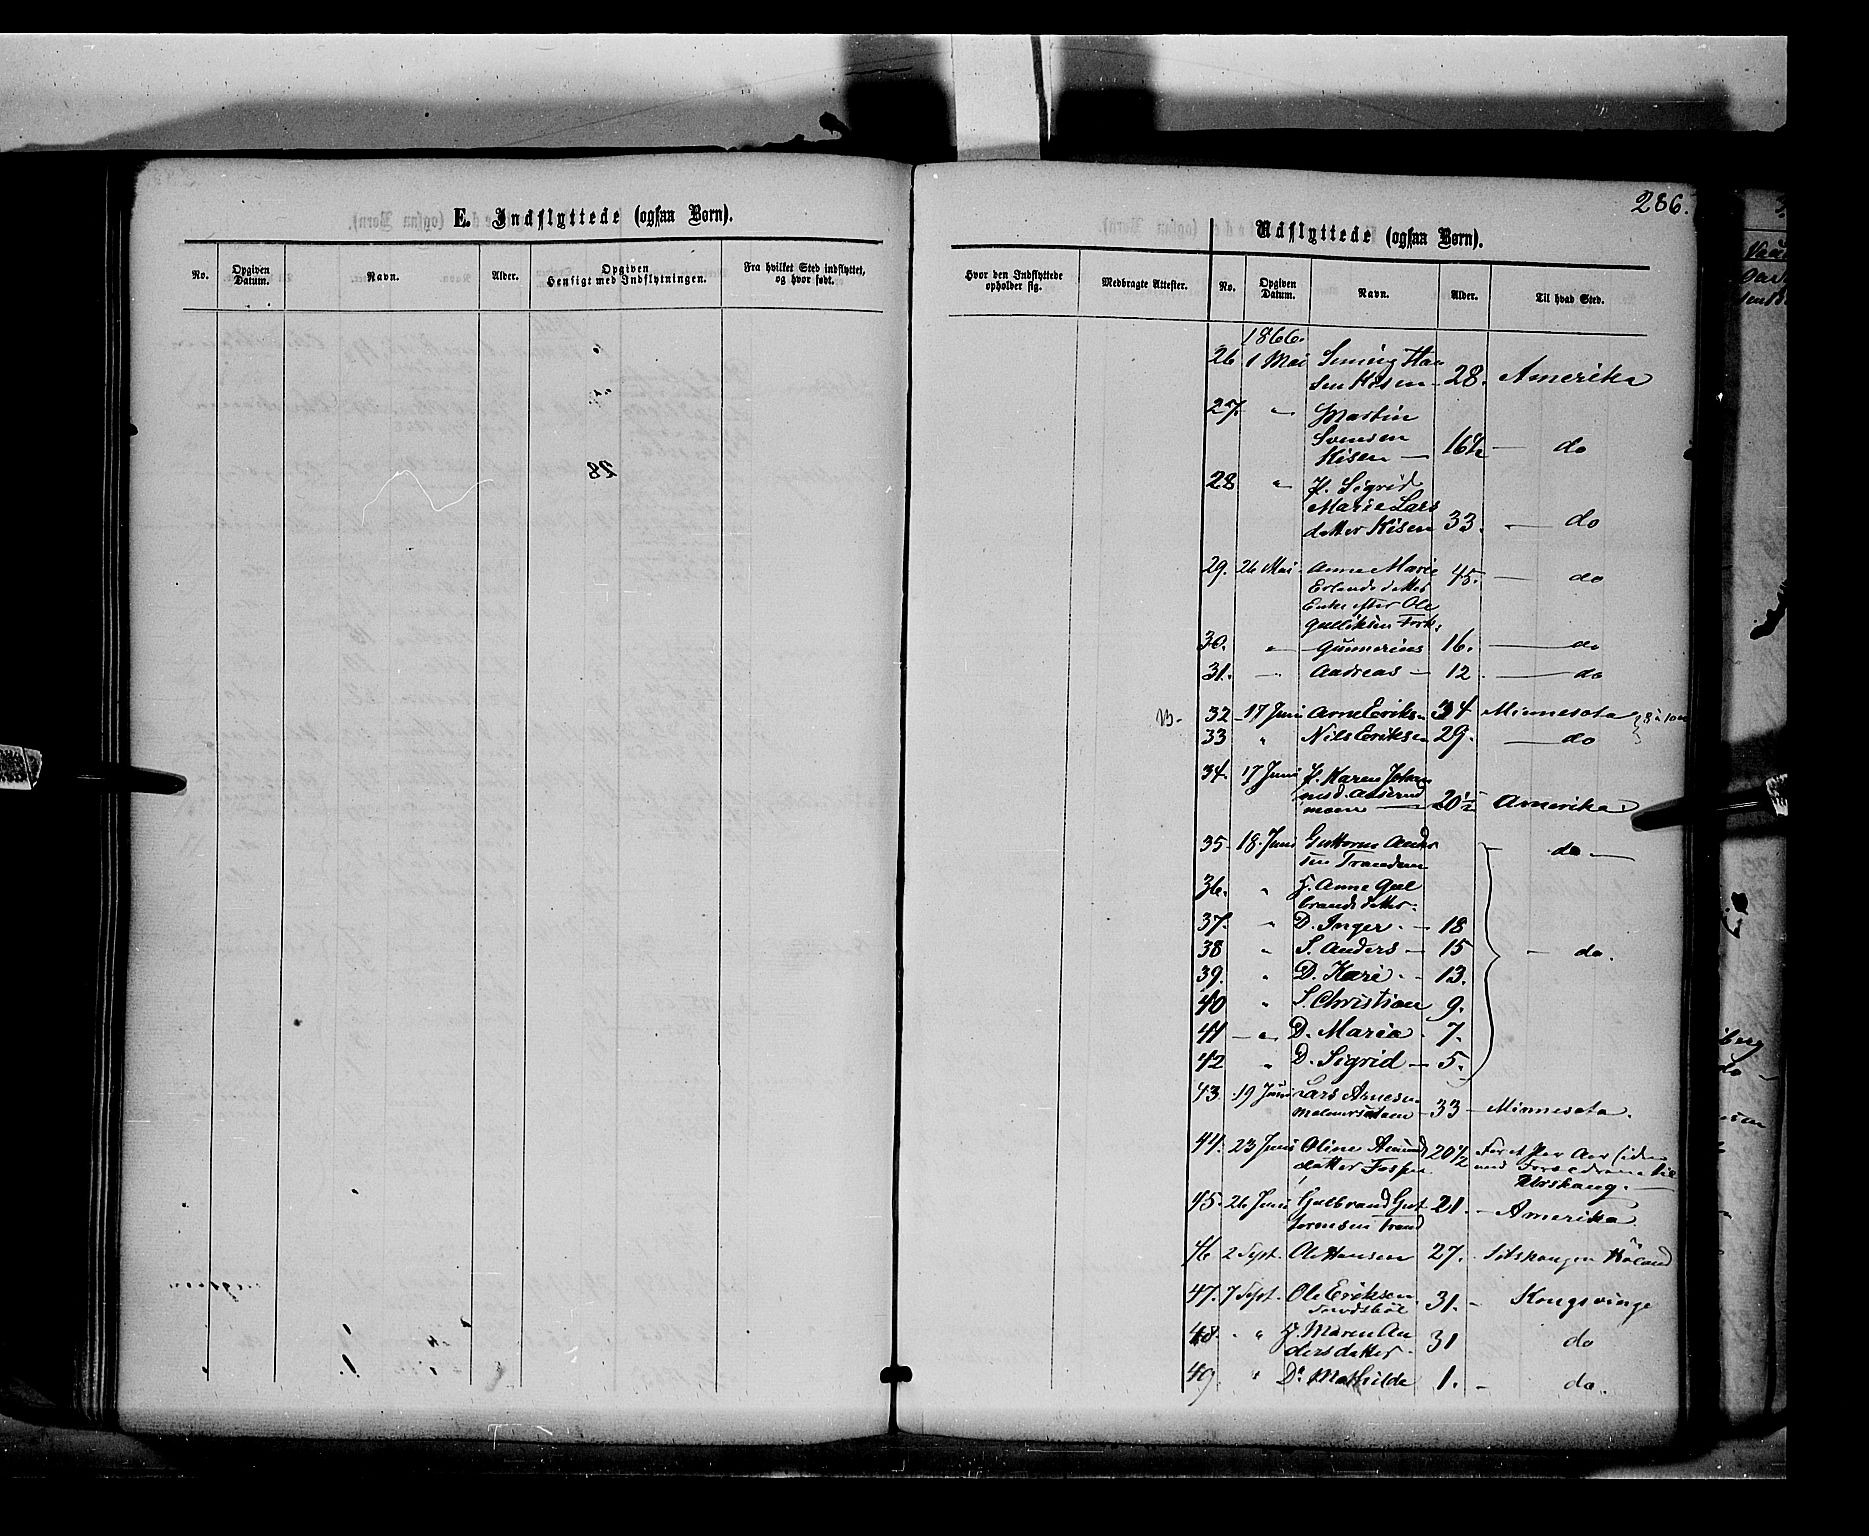 286.
E. Indflyttede (ogsaa Børn).
No.
Opgiven Datum.
Navn.
Alder.
Opgiven Hensigt med Indflytningen.
Fra hvilket Sted indflyttet, og hvor født.
Hvor den Indflyttede opholder sig.
Medbragte Attester.
Udflyttede (ogsaa Børn).
No.
Opgiven Datum.
Navn.
Alder.
Til hvad Sted.
1866.
26 1 Mai Han
sen Kisen 28. Amerika
27. " Martin
Svensen
Kisen — 16½ — do
28 " P. Sigrid
Marie Lars
datter Kisen 33. — do
29. 26 Mai Anne Marie 45. — do
Erlandsdatter
Enke efter Ole
Gulliksen
30. " Gunnerius 16. — do
31. " Andreas — 12 — do
32 17 Juni Arne Eriksen 34 Minnesota
33 " Nils Eriksen 29. — do
34. 17 Juni P. Karen Johan
nesd.
moen — 20½ Amerika
35. 18. Juni Guttorm Ander — do —
sen Trandem
36. " H. Anne Gul
brandsdatter.
37. " D. Inger. — 18
38 " S. Anders — 15 — do.
39. " D. Kari. — 13.
40 " S. Christian 9.
41 — " D. Maria . 7.
42 " D. Sigrid — 5.
43 19 Juni Lars Arnesen
33 — Minnesota.
44. 23 Juni Oline Amund 20½
datter
Urskoug.
45. 26 Juni Gulbrand Gut 21. — Amerika
tormsen Trand
46 2 Sept. Ole Hansen 27. Setskougen Höland
47. 7 Sept. Ole Eriksen 31. — Kongsvinge
48. " H. Maren An 31 do
dersdatter.
49 " D. Mathilde 1. — do.